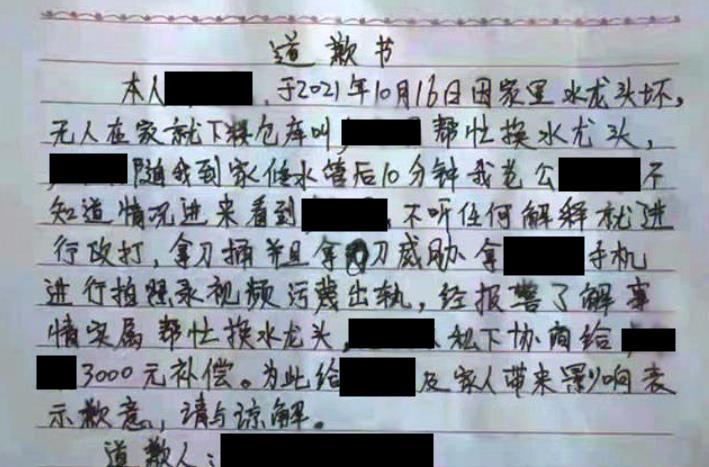 道歉书
本人 ，于2021年10月16日因家里水龙头坏，
无人在家就下楼仓库叫， 帮忙换水龙头，
随我到家修水管后10分钟我老公 不
知道情况进来看到 ，不听任何解释就进
行改打，拿刀捅并且拿刀威胁拿 手机
进行拍照录视频污蔑出轨，经报警了解事
情实属帮忙换水龙头， 私下协商给
3000元补偿。为此给 及家人带来影响表
示歉意，请与谅解。
道歉人：